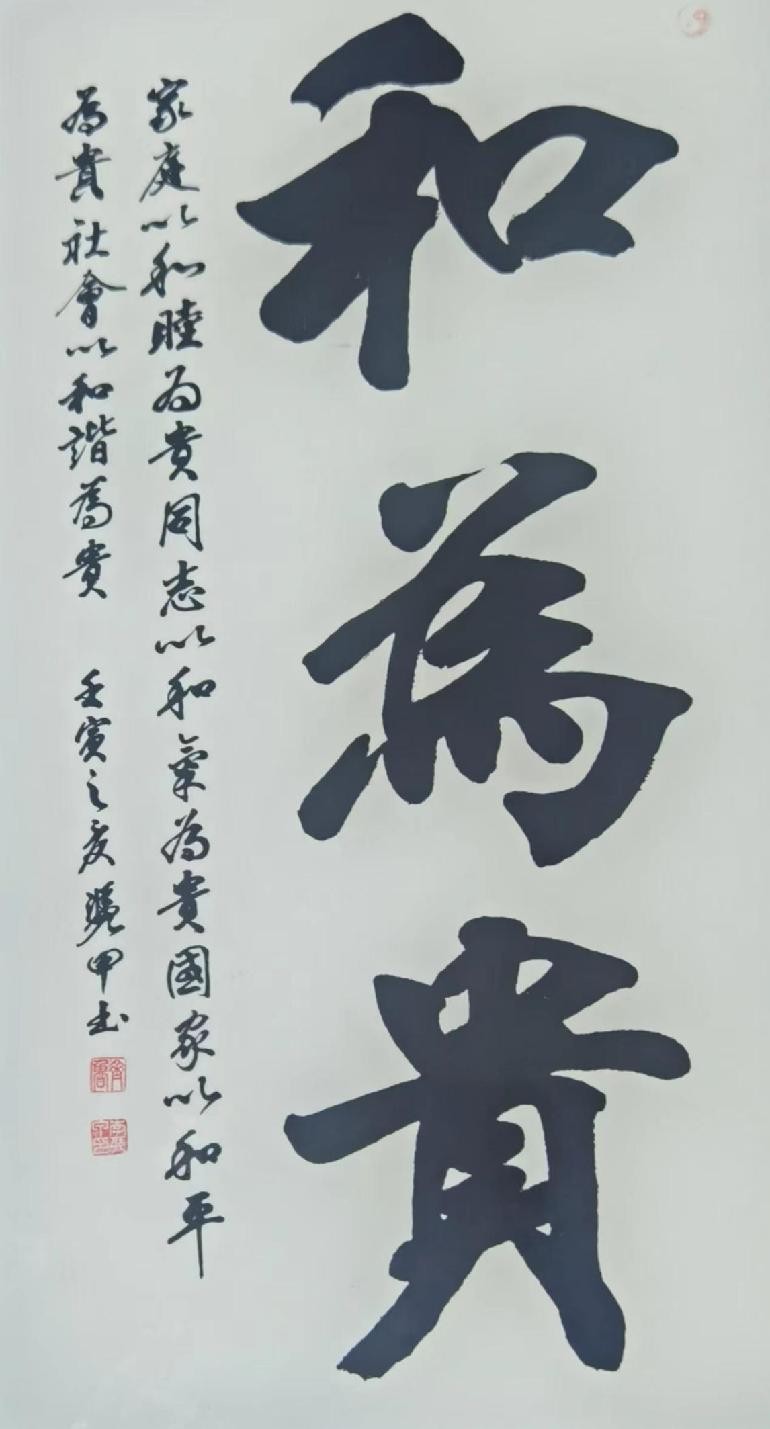 和為貴
家庭以和睦为貴同志以和氣為貴國家以和平
為貴社會以和諧為貴
壬寅之夏 甲書